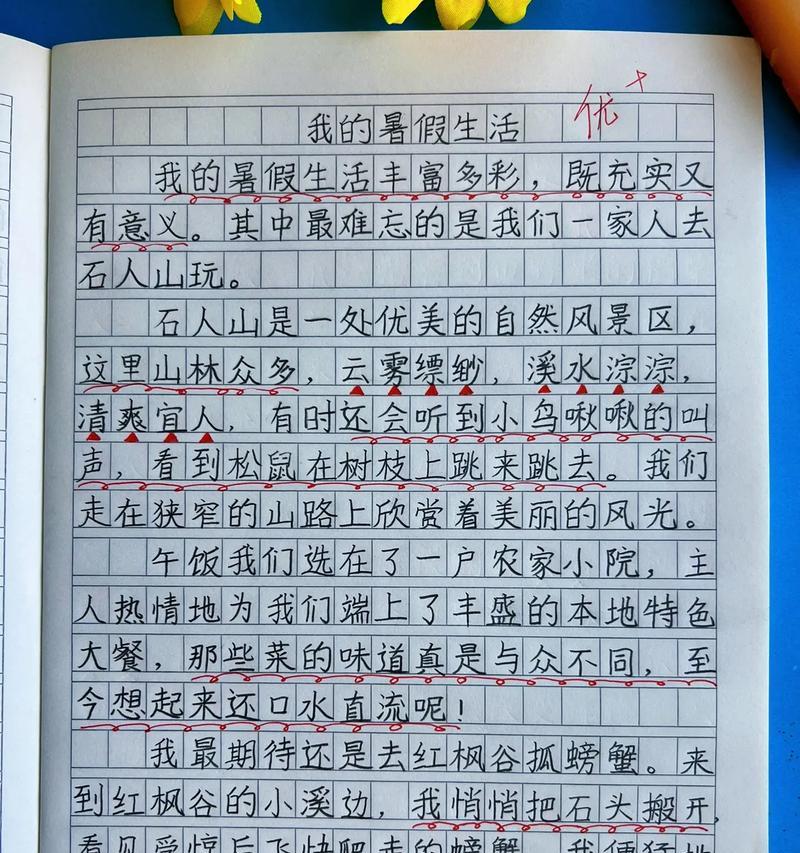 我的暑假生活
优+
我的暑假生活丰富多彩，既充实又
有意义。其中最难忘的是我们一家人去
石人山玩。
石人山是一处优美的自然风景区，
这里山林众多，云雾缥缈，溪水淙淙，
清爽宜人，有时还会听到小鸟啾啾的叫
声，看到松鼠在树枝上跳来跳去。我们
走在狭窄的山路上欣赏着美丽的风光。
午饭我们选在了一户农家小院，主
人热情地为我们端上了丰盛的本地特色
大餐，那些菜的味道真是与众不同，至
今想起来还口水直流呢！
我最期待还是去红枫谷抓螃蟹。来
到红枫谷的小溪边，我悄悄把石头搬开，
看见受惊后飞快爬走的螃蟹，我便猛地